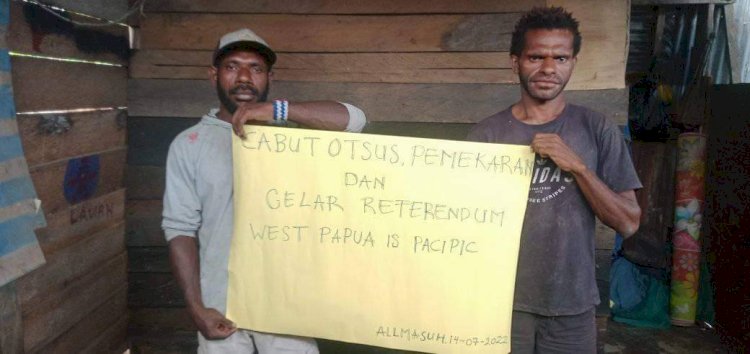 CABUT OTSUS, PEMEKARAN
DAN
GELAR RETERENDUM
WEST PAPUA IS PACIPIC
ALLMASUH, 14-07-2022
LAVIAN